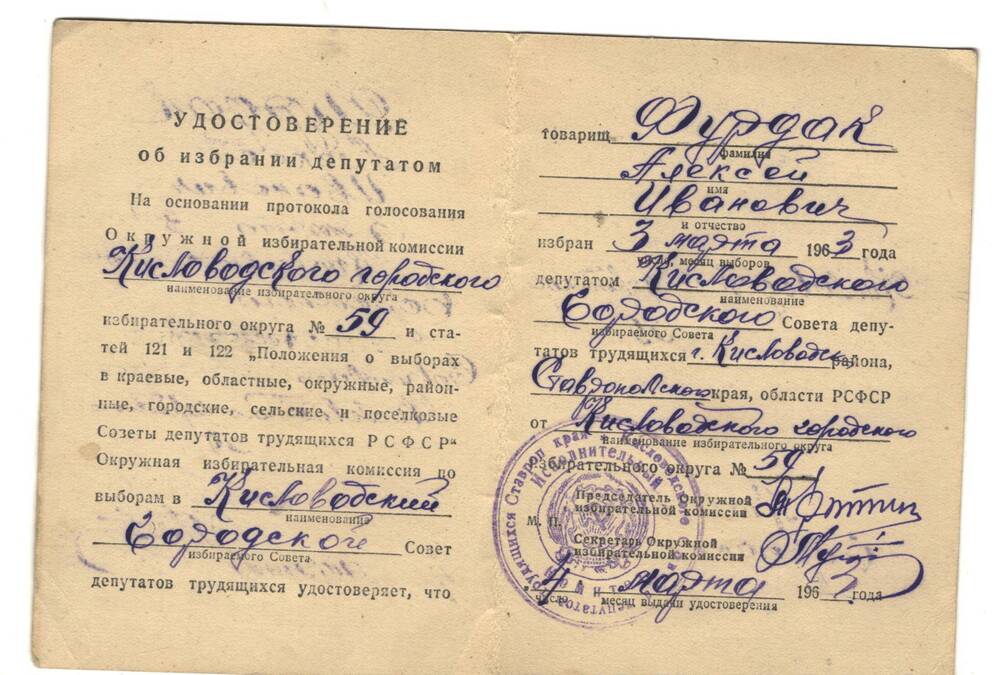 УДОСТОВЕРЕНИЕ
об избрании депутатом
На основании протокола голосования
Окружной избирательной комиссии
Кисловодского городского
наименование избирательного округа
избирательного округа № 59 и ста-
тей 121 и 122 „Положения о выборах
в краевые, областные, окружные, район-
ные, городские, сельские и поселковые
Советы депутатов трудящихся РСФСР"
Окружная избирательная комиссия по
выборам в Кисловодский
наименование
Городской Совет
избираемого Совета
депутатов трудящихся удостоверяет, что
товарищ Фурдак
фамилия
Алексей
имя
Иванович
и отчество
избран 3 марта 1963 года
число, месяц выборов
депутатом Кисловодского
наименование
Городского Совета депу-
избираемого Совета
татов трудящихся г. Кисловодск района,
Ставропольского края, области РСФСР
от Кисловодского городского
наименование избирательного округа
избирательного округа № 59
Председатель Окружной
избирательной комиссии
М. П.
Секретарь Окружной
избирательной комиссии
4 марта 1963 года
число месяц выдачи удостоверения
Исполнительный